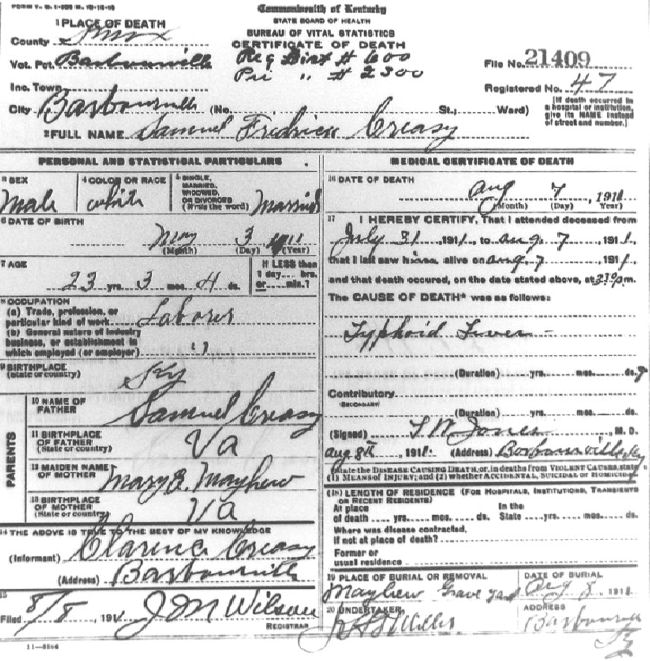 Commonwealth of Kentucky
STATE BOARD OF HEALTH
BUREAU OF VITAL STATISTICS
CERTIFICATE OF DEATH
1 PLACE OF DEATH
County Knox
Vot. Pct. Barbourville Reg Dist # 600
Pri " # 2300
File No. 21409
Inc. Town
Registered No. 47
City Barbourville (No. St., Ward)
[If death occurred in a hospital or institution, give its NAME instead of street and number.]
2 FULL NAME Samuel Fredrick Creasy
PERSONAL AND STATISTICAL PARTICULARS
3 SEX
Male
4 COLOR OR RACE
white
5 SINGLE, MARRIED, WIDOWED, OR DIVORCED (Write the word)
Married
6 DATE OF BIRTH
May 3 1911
(Month) (Day) (Year)
7 AGE
23 yrs. 3 mos. 4 ds.
If LESS than 1 day hrs. or min.?
8 OCCUPATION
(a) Trade, profession, or particular kind of work Laborer
(b) General nature of industry business, or establishment in which employed (or employer) "
9 BIRTHPLACE
(State or country) Ky
PARENTS
10 NAME OF FATHER Samuel Creasy
11 BIRTHPLACE OF FATHER (State or country) Va
12 MAIDEN NAME OF MOTHER Mary E. Mayhew
13 BIRTHPLACE OF MOTHER (State or country) Va
14 THE ABOVE IS TRUE TO THE BEST OF MY KNOWLEDGE
(Informant) Clarence Creasy
(Address) Barbourville
15
Filed 8/8, 191 J M Wilson
REGISTRAR
MEDICAL CERTIFICATE OF DEATH
16 DATE OF DEATH
Aug 7, 1911
(Month) (Day) (Year)
17 I HEREBY CERTIFY, That I attended deceased from
July 31 1911, to Aug. 7, 1911,
that I last saw him alive on Aug. 7, 1911,
and that death occurred, on the date stated above, at m.
The CAUSE OF DEATH* was as follows:
Typhoid Fever
(Duration) yrs. mos. ds.
Contributory
SECONDARY
(Duration) yrs. mos. ds.
(Signed) Jones, M. D.
Aug 8th, 1911. (Address) Barbourville Ky
*State the DISEASE CAUSING DEATH, or, in deaths from VIOLENT CAUSES, state (1) MEANS OF INJURY; and (2) whether ACCIDENTAL, SUICIDAL OR HOMICIDAL
18 LENGTH OF RESIDENCE (FOR HOSPITALS, INSTITUTIONS, TRANSIENTS OR RECENT RESIDENTS)
At place of death yrs. mos. ds. In the State yrs. mos. ds.
Where was disease contracted,
if not at place of death?
Former or
usual residence
19 PLACE OF BURIAL OR REMOVAL
Mayhew Grave Yard
DATE OF BURIAL
Aug 8, 1911
20 UNDERTAKER
ADDRESS
Barbourville
Ky